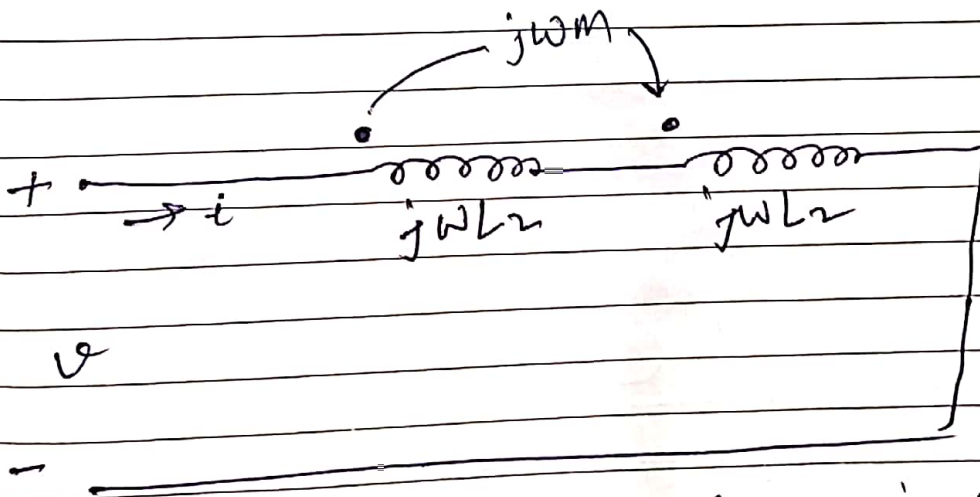 jωM
+
→ i
jωL2 jωL2
v
-